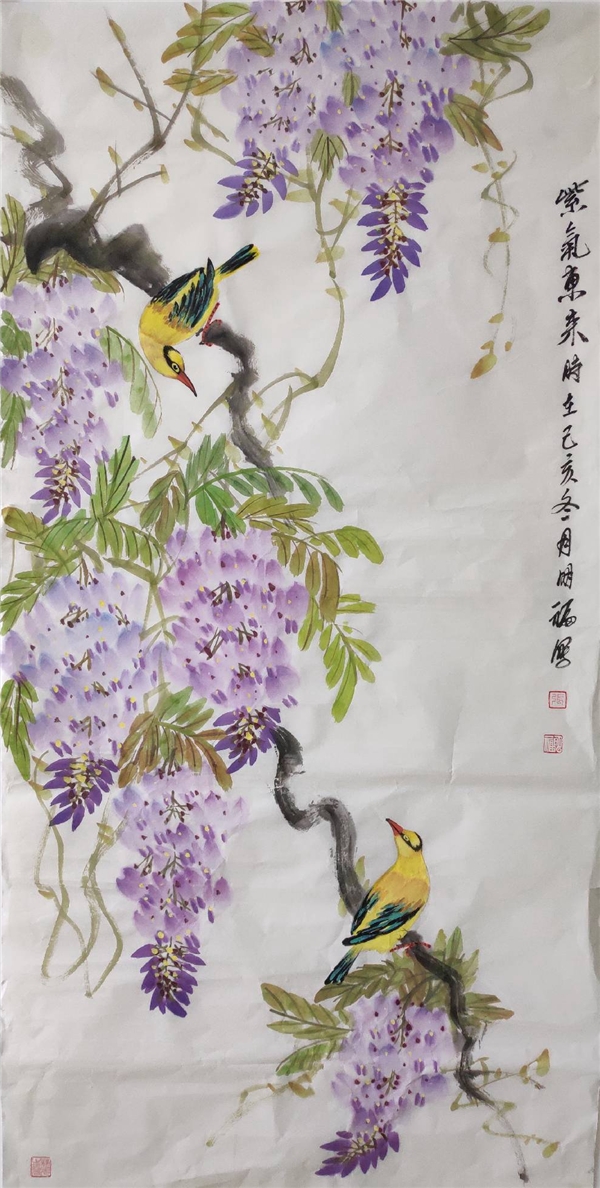 紫氣東来時在己亥冬一月明福寫